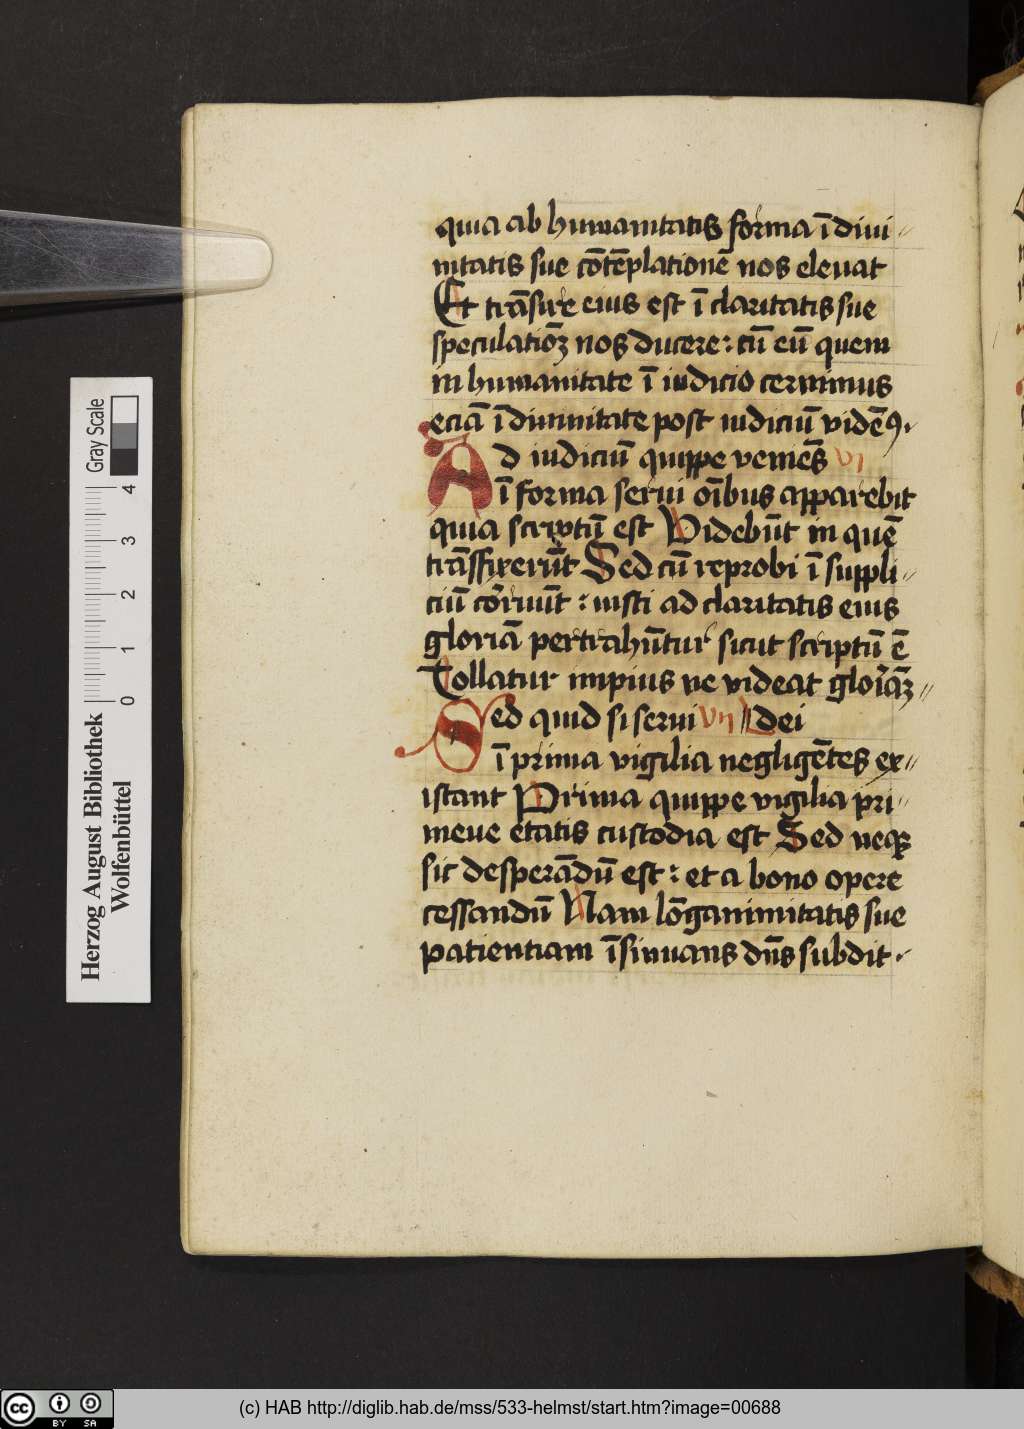 quia ab humanitatis forma ī diui
nitatis sue cōtēplationē nos eleuat
Et trāsire eius est ī claritatis sue
speculatiōꝫ nos ducere : cū eū quem
in humanitate ī iudicio cernimus
eciā ī diuinitate post iudiciū vidēꝰ.
Ad iudiciū quippe veniēs vi
ī forma serui oībus apparebit
quia scriptū est Videbūt in quē
trāsfixerūt Sed cū reprobi ī suppli
ciū cōrruūt : iusti ad claritatis eius
gloriā pertrahūtur sicut scriptū ē
Tollatur impius ne videat gloriāꝫ
Sed quid si serui vii dei
ī prima vigilia negligētes ex
istant Prima quippe vigilia pri
meue etatis custodia est Sed neqꝫ
sic desperādū est : et a bono opere
cessandū Nam lōganimitatis sue
patientiam īsinuans dn̄s subdit.
Gray Scale
0 1 2 3 4
Herzog August Bibliothek
Wolfenbüttel
cc BY SA
(c) HAB http://diglib.hab.de/mss/533-helmst/start.htm?image=00688